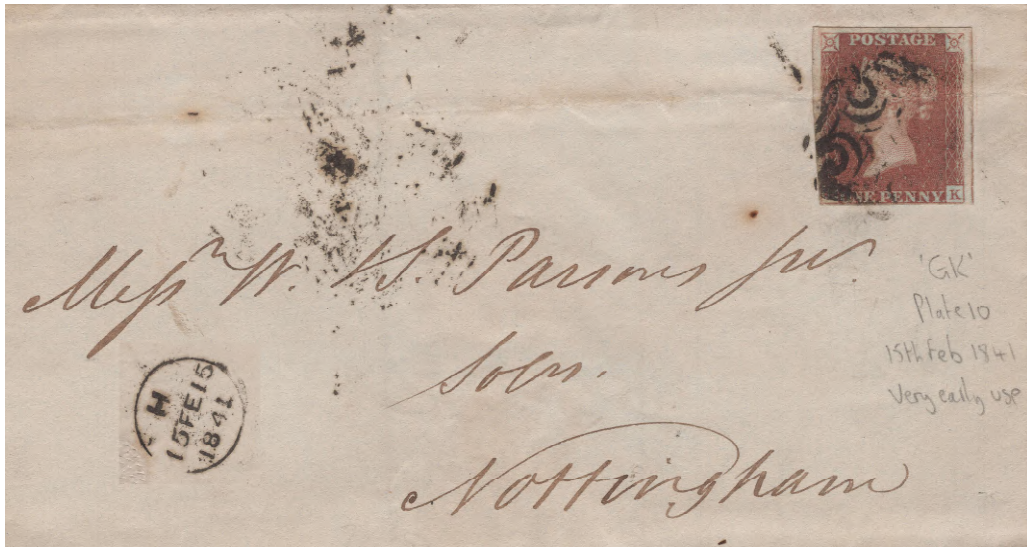 POSTAGE
NE PENNY K
Messrs W. & S. Parsons Junr
Solrs.
Nottingham
H
15FE15
1841
'GK'
Plate 10
15th Feb 1841
Very early use